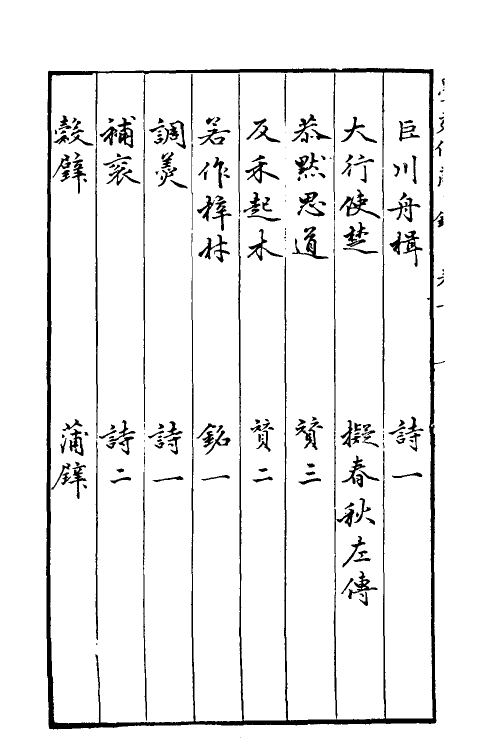 巨川舟楫　詩一
大行使楚　擬春秋左傳
恭默思道　贊三
反禾起木　贊二
若作梓材　銘一
調羹　詩一
補袞　詩二
穀璧　蒲璧